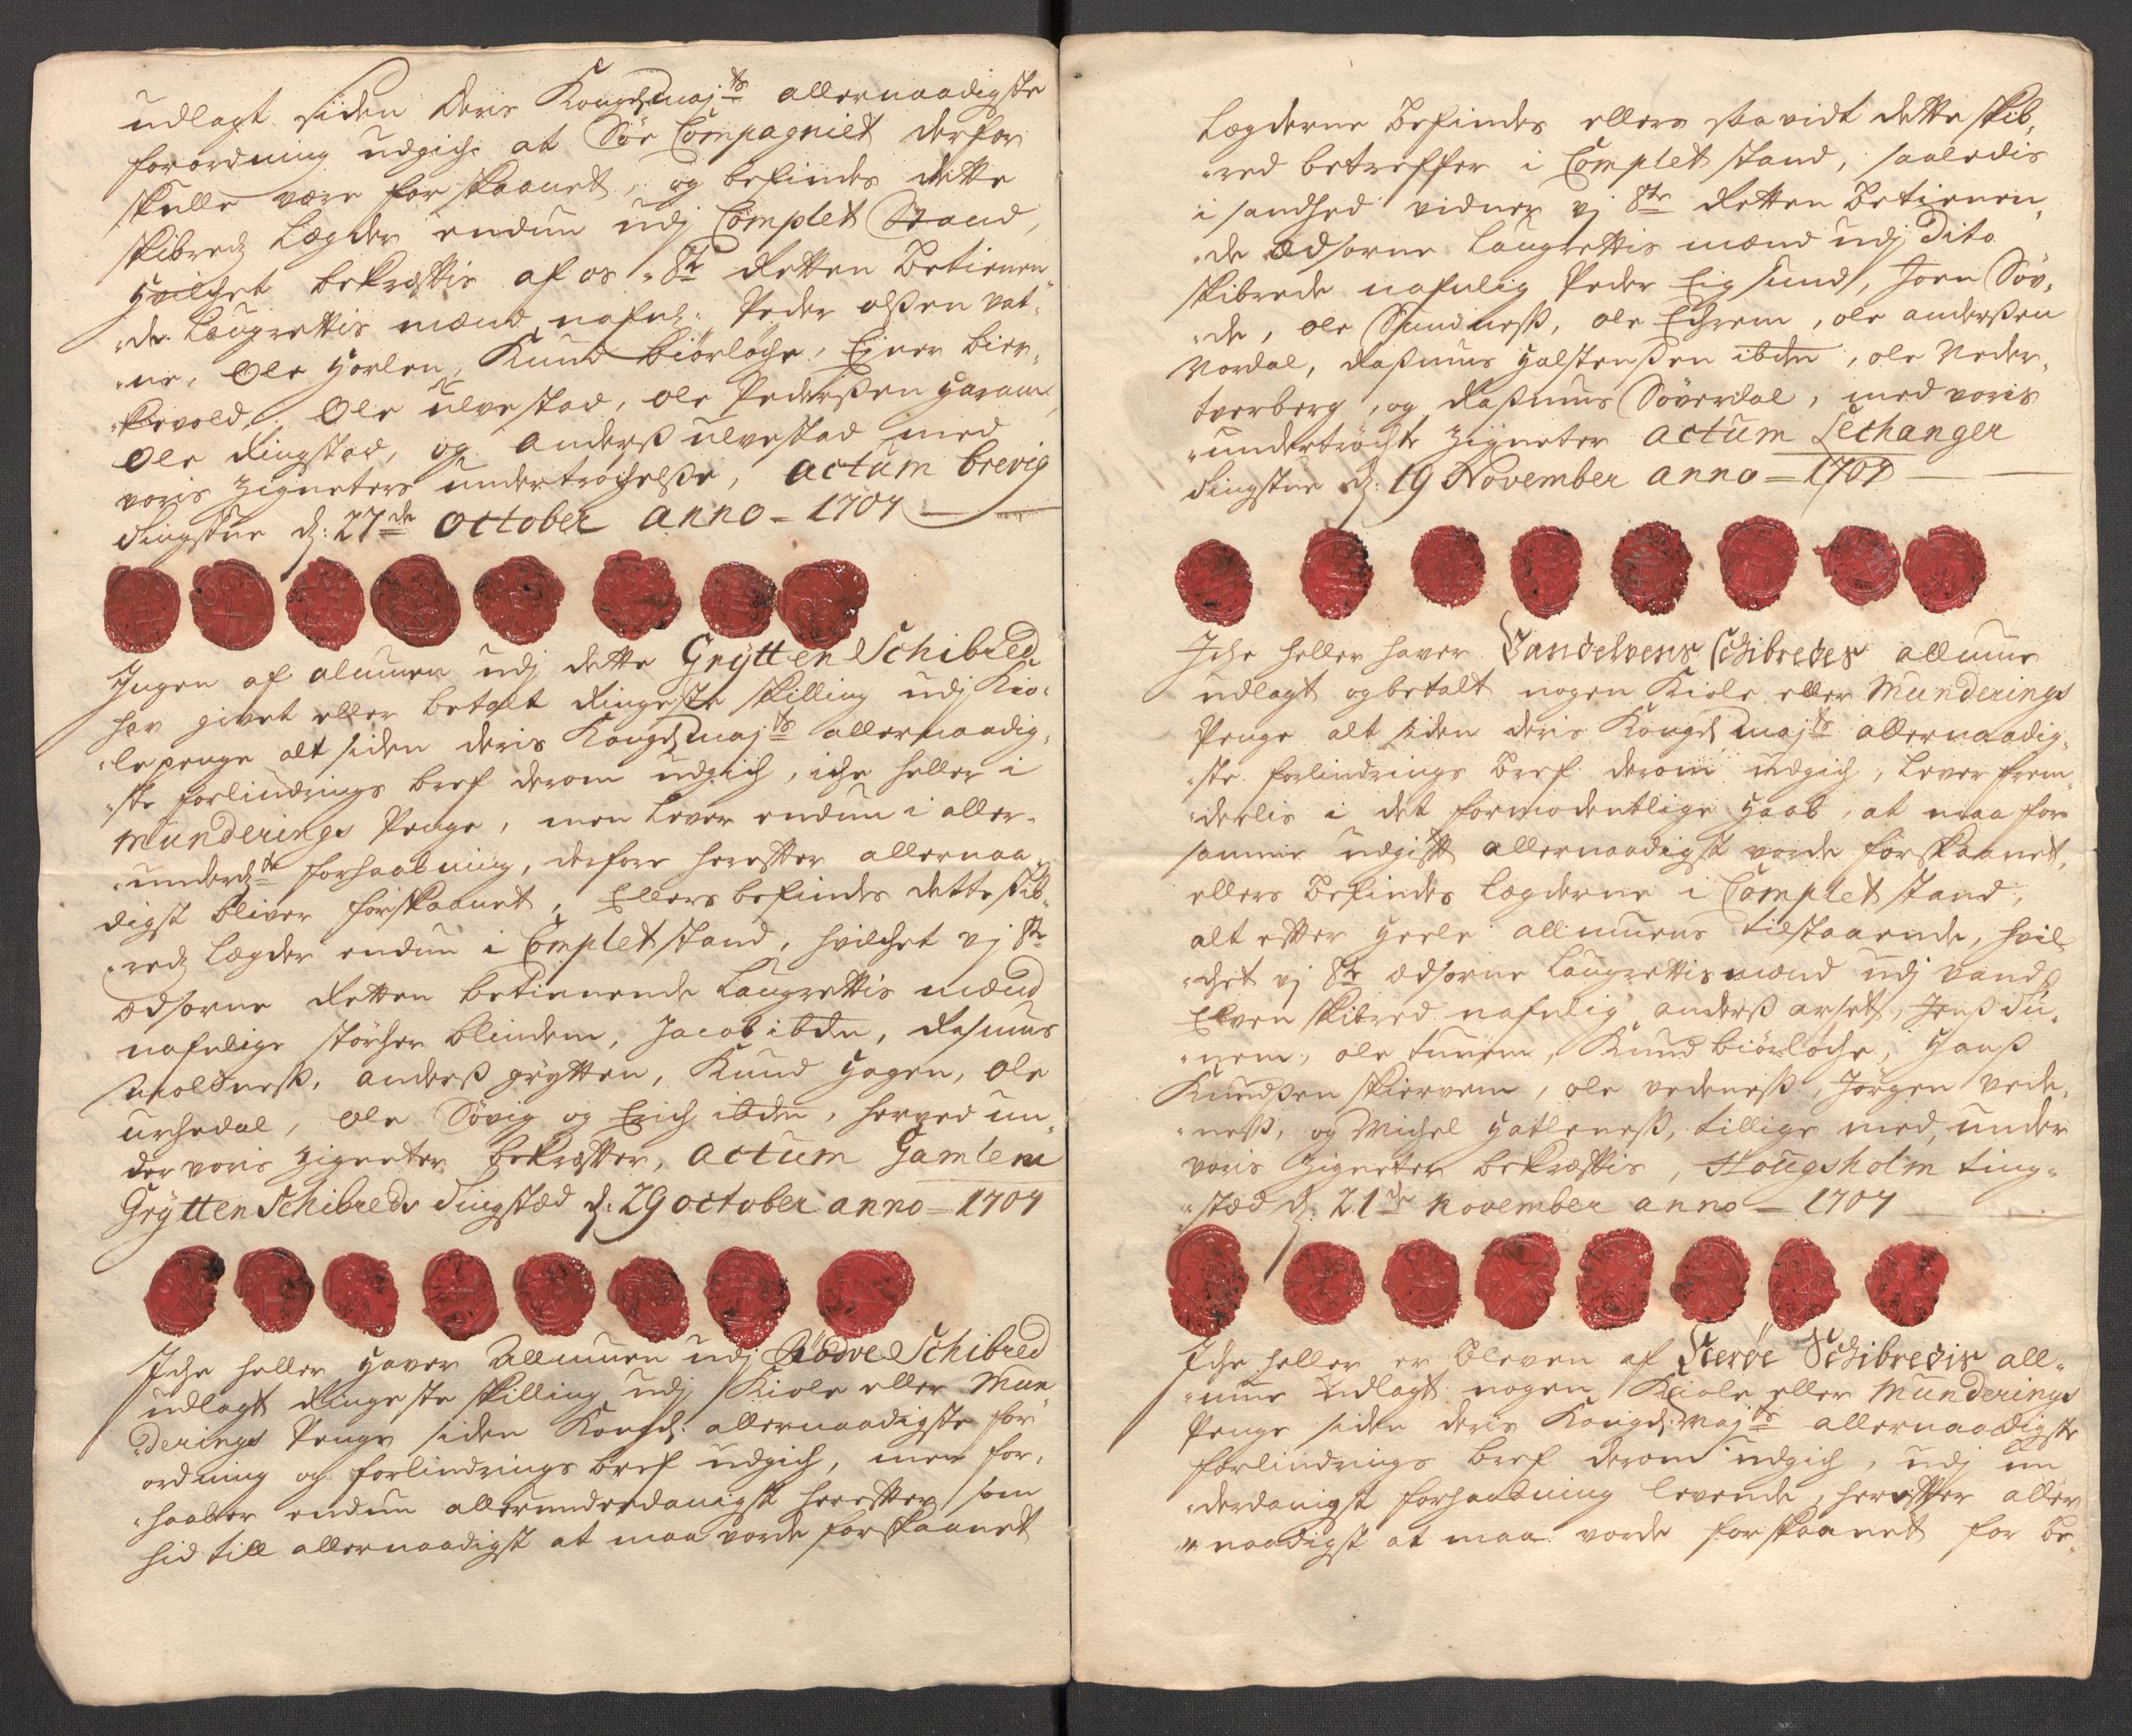 udlagt siden Deris Kongl Maj:ts allernaadigste
forordning udgich at Søe Compagniet derfor
skulle være forskaanet, og befindes dette
skibredz Lægder endnu udj Complet Stand,
hvilchet bekræfftis af os 8te Retten Betienen
de Laugrettis mænd nafnl: Peder olßen vat
ne, Ole Horlen, Knud biörløche, Ejner bier
kevold, Ole ulvestad, ole Pederßen Haram
Ole Ringstad, og anderß ulvestad med
voris Zigneters undertrychelße, actum brevig
Tingstue d: 27de October anno 1704
Ingen af almuen udj dette Grÿtten Schibred
har givet eller betalt Ringeste skilling udj Kio
le penge alt siden deris Kongl Maj:ts allernaadig
ste forlindrings bref derom udgich, iche heller i
Munderings Penge, men lever endnu i aller
underd:te forhaabning, derfore herefter allernaa
digst bliver forskaanet, Ellers befindes dette skib
redz Lægder endnu i Complet stand, hvilchet vj 8te
Edsorne Retten betienende Laugrettis mænd
nafnlige Störcher blindem, Jacob ibdn, Rasmus
moldneß, anderß grÿtten, Knud Hagen, Ole
urhedal, Ole Søvig og Erich ibdn, herved un
der voris Zigneter bekræfter, actum Gamlem
Grÿtten Schibreds Tingstæd d: 29 october anno 1704
Iche heller haver Allmuen udj Rödve Schibred
udlagt Ringeste skilling udj Kiole eller Mun
derings Penge siden Kongl: allernaadigste for
ordning og forlindrings bref udgich, men for
haaber endnu allerunderdanigst herefter som
hid till allernaadigst at maa vorde forskaanet
Lægderne befindes ellers saavidt dette skib
red betreffer i Complet stand, saaledis
i sandhed vidner vj 8te Retten Betienen
de Edsorne Laugrettis mænd udj Dito
skibrede nafnlig Peder Eigsund, Joen Söv
de, ole Sundneß, ole Echrem, ole anderßen
Nordal, Raßmus Halstenßen ibdn, ole Neder
tverberg, og Raßmus Söverdal, med voris
undertröchte Zigneter actum Lechanger
Tingstue d: 19 November anno 1704
Iche heller haver Vandelvens Schibredes allmue
udlagt og betalt nogen Kiole eller Munderings
Penge alt siden deris Kongl Maj:ts allernaadig
ste forlindrings bref derom udgich, lever frem
derlis i det formodentlige Haab, at maa for
samme udgifft allernaadigst vorde forskaanet,
ellers befindes Lægderne i Complet stand,
alt efter Heele allmuens tilstaaende, hvil
chet vj 8te Edsorne Laugrettis mænd udj vand
Elven skibred nafnlig anderß arset, Jenß Tu
nem, ole tunem, Knud biörløche, Hanß
Knudßen skiervem, ole vedeneß, Jörgen vede
neß, og Michel Hatleneß, tillige med, under
voris Zigneter bekræfftis, Hougsholm ting
stæd d: 21de November anno 1704
Iche heller er bleven af Sterøe Schibredis all
mue Udlagt nogen Kiole eller Munderings
Penge siden deris Kongl: Maj:ts allernaadigste
forlindrings bref derom udgich, udj un
derdanigst forhaabning levende, herefter aller
naadigst at maa vorde forskaanet for be